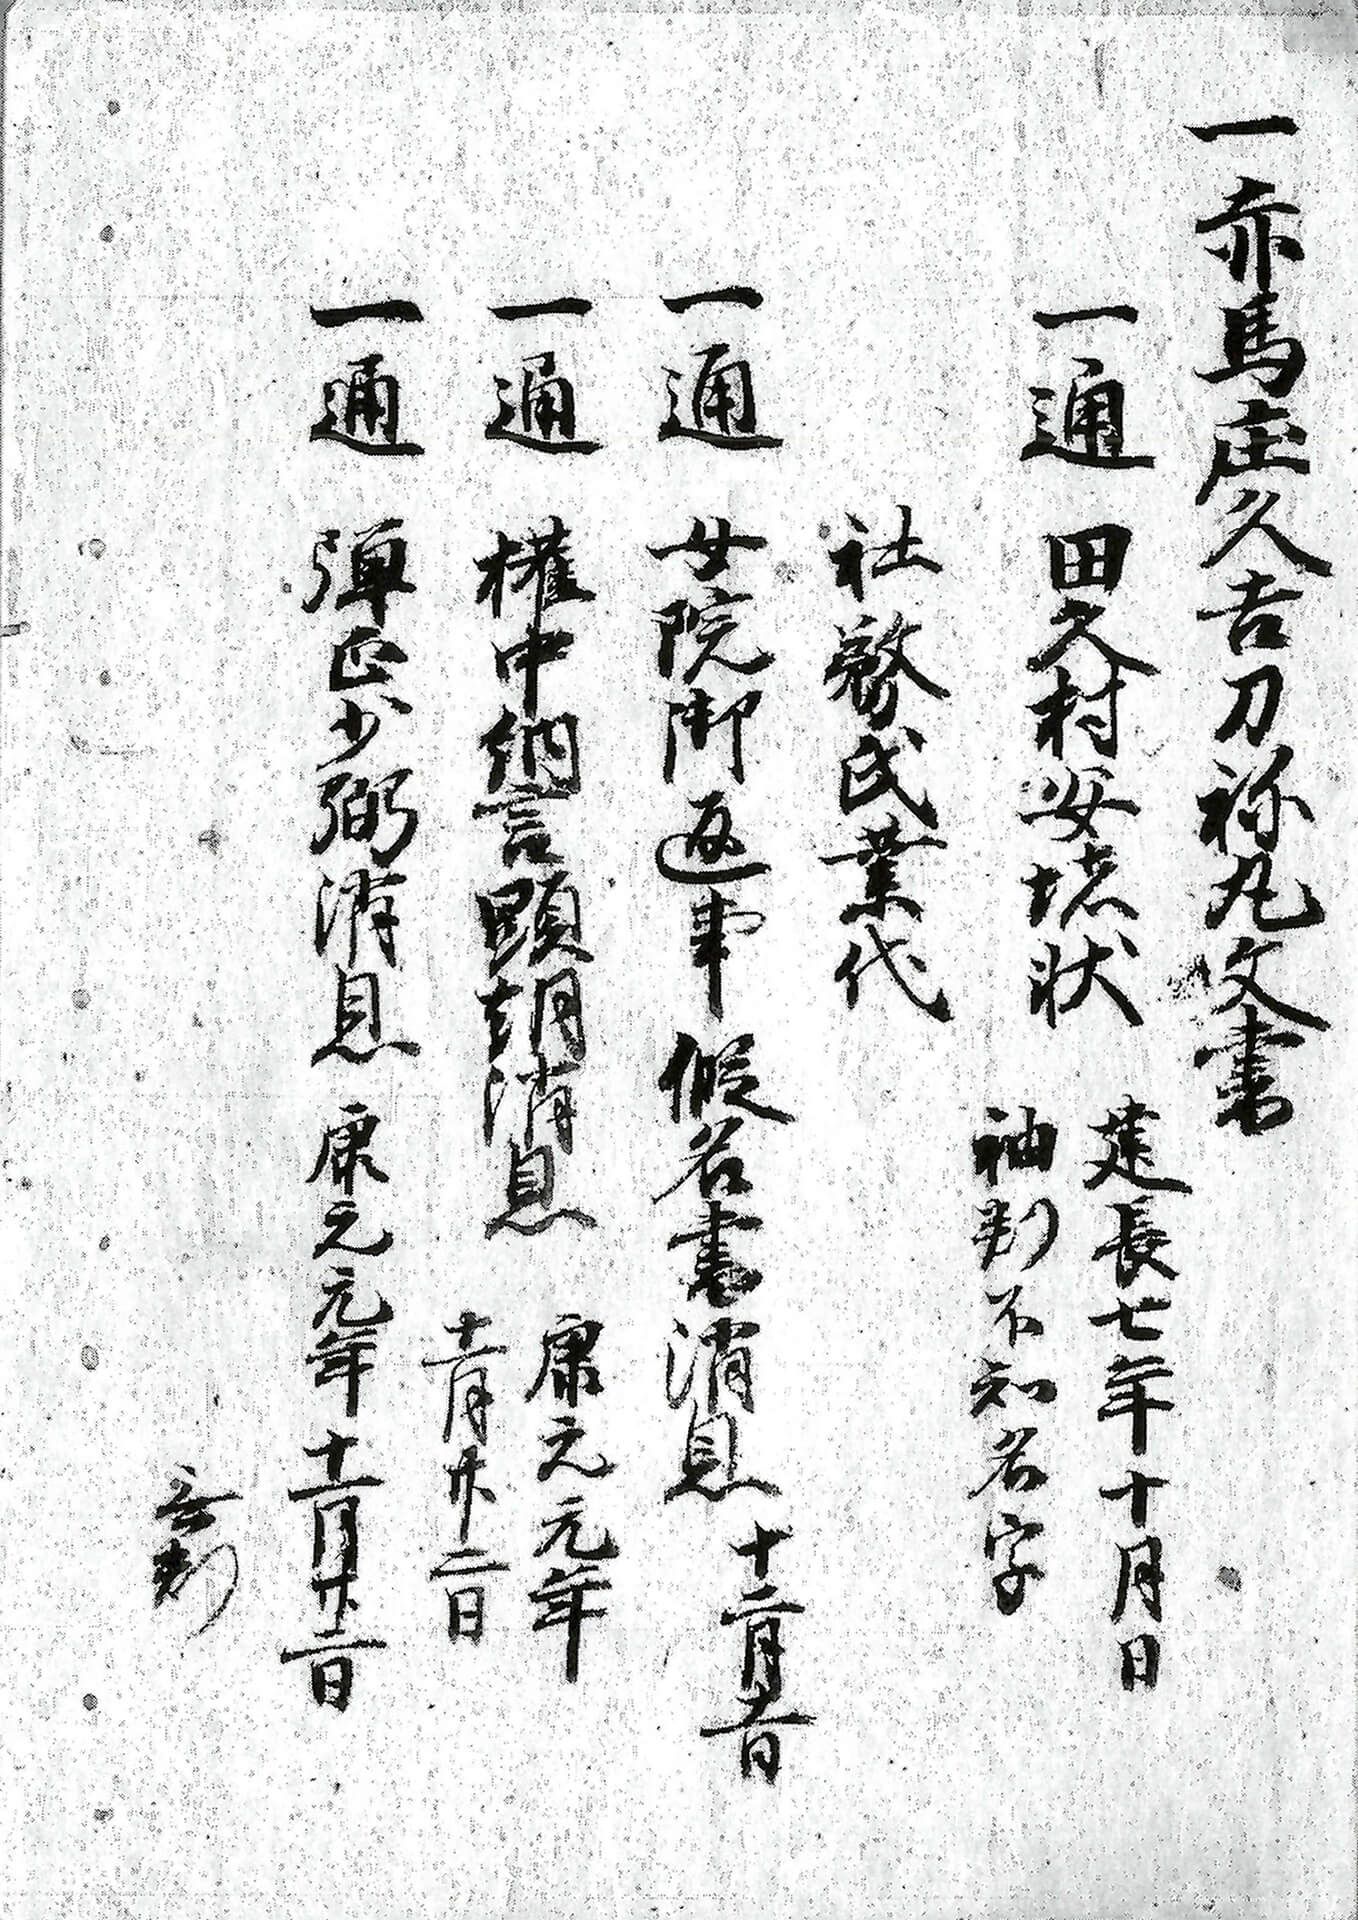 一赤馬庄久吉刀祢丸文書
一通 田久村安堵状 建長七年十月日
袖判不知名字
社務氏業代
一通 女院御返事假名書消息 十二月十一日
一通 権中納言顕朝消息 康元元年
十一月廿二日
一通 弾正少弼消息 康元元年十一月廿三日
无判